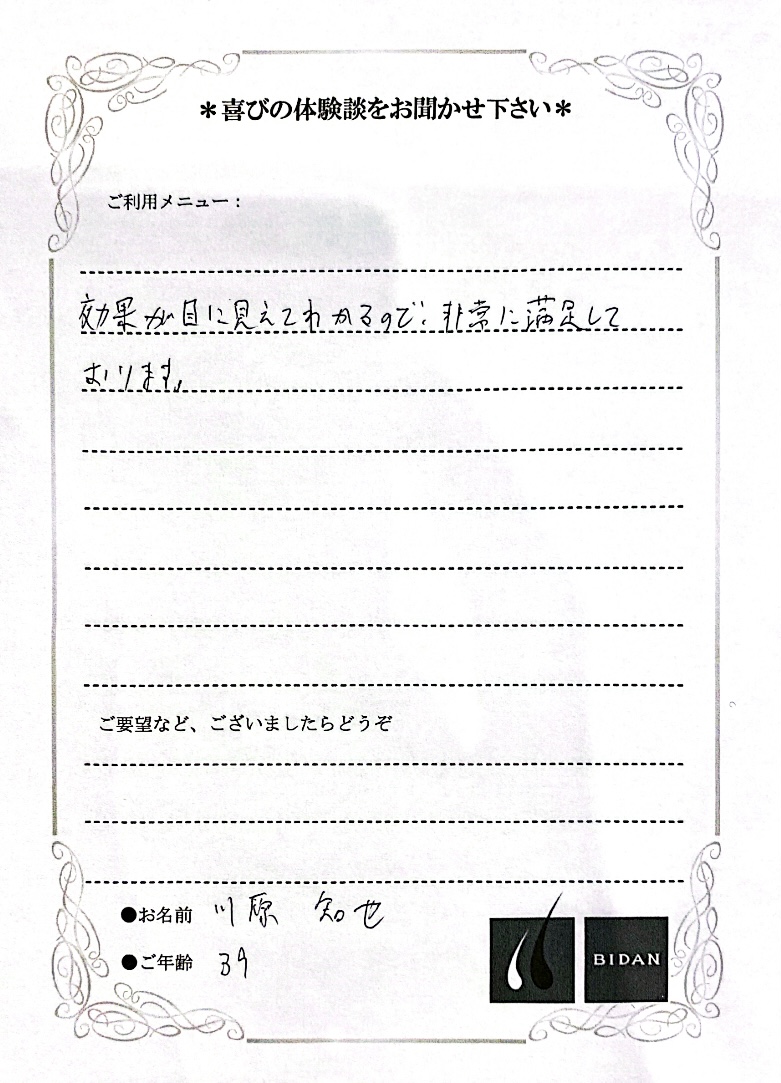 ＊喜びの体験談をお聞かせ下さい＊
ご利用メニュー：
効果が目に見えてわかるので、非常に満足して
おります。
ご要望など、ございましたらどうぞ
●お名前 川原 知也
●ご年齢 39
BIDAN